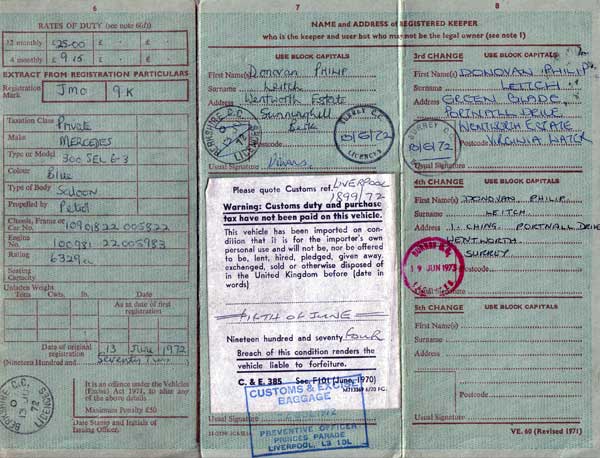 6
RATES OF DUTY (see note 6(d))
12 monthly £25·00 £ · £ ·
4 monthly £9·15 £ · £ ·
EXTRACT FROM REGISTRATION PARTICULARS
Registration Mark JMO 9K
Taxation Class Private
Make MERCEDES
Type or Model 300 SEL 6·3
Colour Blue
Type of Body SALOON
Propelled by Petrol
Chassis, Frame or Car No. 10901822 005822
Engine No. 100981 22.005983
Rating 6329cc
Seating Capacity
Unladen Weight
Tons Cwts. lb. Date
As at date of first registration
Date of original registration 13 June 1972
(Nineteen Hundred and Seventy Two)
It is an offence under the Vehicles (Excise) Act 1971, to alter any of the above details
Maximum Penalty £50
Date Stamp and Initials of Issuing Officer.
BERKSHIRE C.C.
LICENCES
7
8
NAME and ADDRESS of REGISTERED KEEPER
who is the keeper and user but who may not be the legal owner (see note 1)
USE BLOCK CAPITALS
First Name(s) Donovan PHILIP
Surname Leitch
Address Wentworth Estate
Sunninghill
Berks
Usual Signature
BERKSHIRE C.C.
LICENCES
SURREY C.C.
13/6/72
LICENCES
Please quote Customs ref. LIVERPOOL
1899/72
Warning: Customs duty and purchase
tax have not been paid on this vehicle.
This vehicle has been imported on con-
dition that it is for the importer's own
personal use and will not be, nor be offered
to be, lent, hired, pledged, given away
exchanged, sold or otherwise disposed of
in the United Kingdom before (date in
words)
FIFTH OF JUNE
Nineteen hundred and seventy FOUR
Breach of this condition renders the
vehicle liable to forfeiture.
C. & E. 385 Sec. F101 (June, 1970)
CUSTOMS & EXCISE
BAGGAGE
PREVENTIVE OFFICER
PRINCES PARADE
LIVERPOOL, L3 1DL
Usual Signature
3rd CHANGE USE BLOCK CAPITALS
First Name(s) DONOVAN PHILIP
Surname LEITCH
Address GREEN GLADE,
PORTNALL DRIVE
WENTWORTH ESTATE
Postcode VIRGINIA WATER
Usual Signature
SURREY C.C.
13/6/72
4th CHANGE USE BLOCK CAPITALS
First Name(s) DONOVAN PHILIP
Surname LEITCH
Address I. CHING. PORTNALL DRIVE
WENTWORTH
SURREY
Postcode
Usual Signature
19 JUN 1973
5th CHANGE USE BLOCK CAPITALS
First Name(s)
Surname
Address
Postcode
Usual Signature
VE. 60 (Revised 1971)